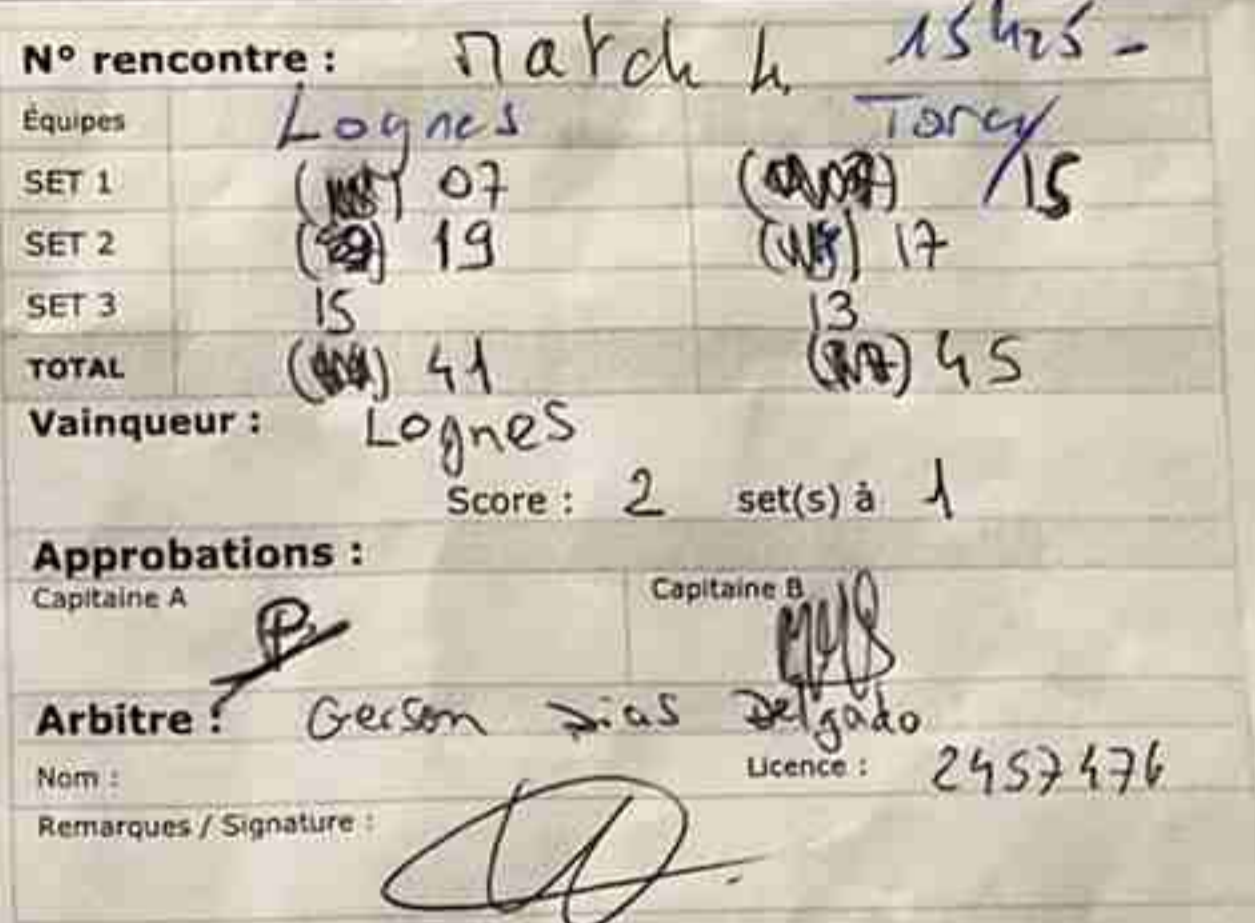 N° rencontre : Match 4 15h25 -
Équipes Lognes Torcy
SET 1 07 15
SET 2 19 17
SET 3 15 13
TOTAL 41 45
Vainqueur : Lognes
Score : 2 set(s) à 1
Approbations :
Capitaine A Capitaine B
Arbitre : Gerson Dias Delgado
Nom : Licence : 2457476
Remarques / Signature :